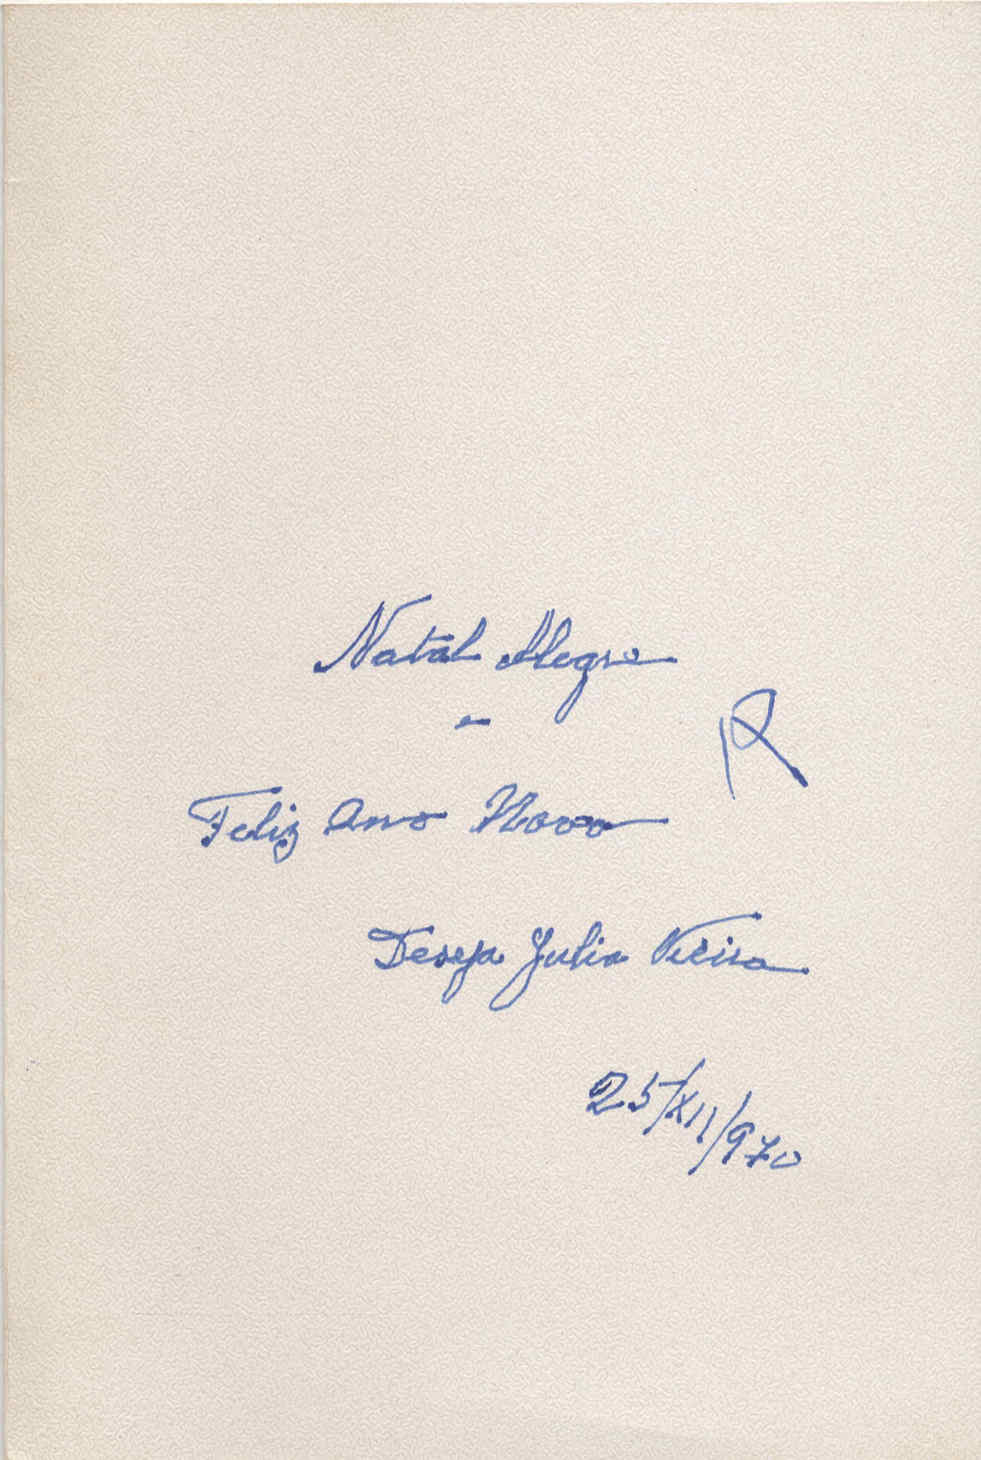 Natal Alegre
e
R
Feliz Ano Novo
Deseja Julia Vieira
25/XII/970